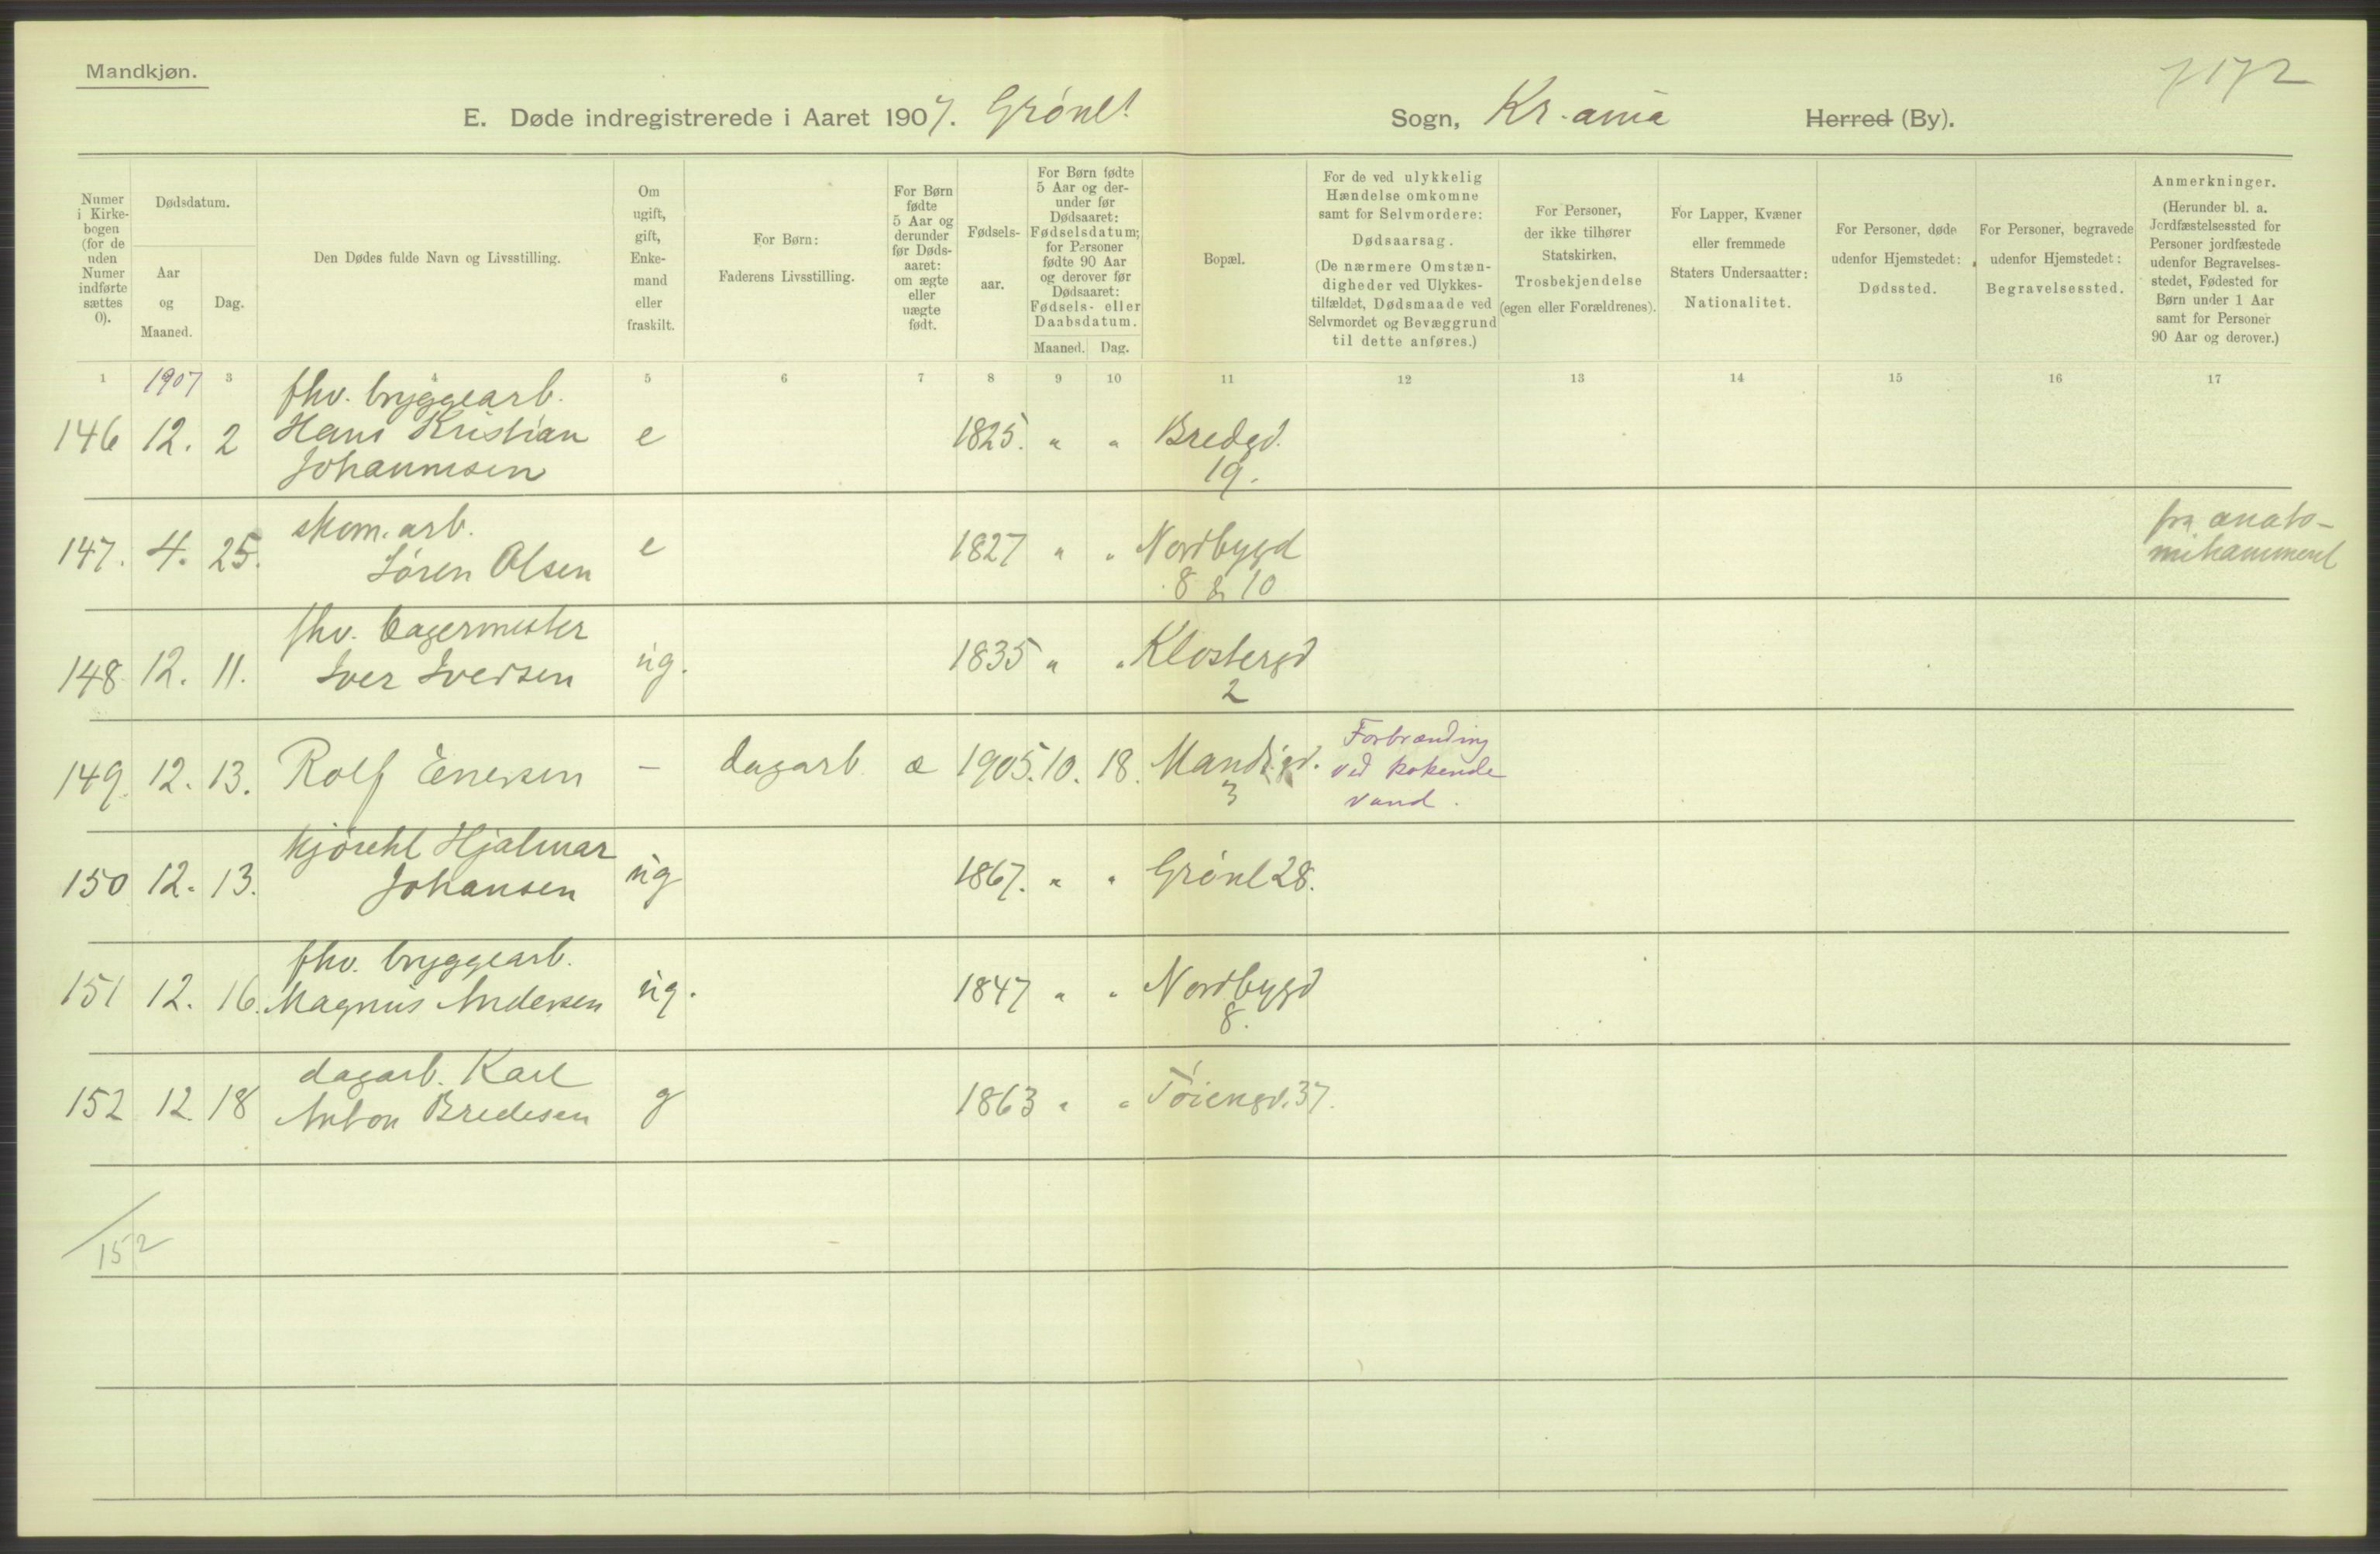 Mandkjøn.
7172
E. Døde indregistrerede i Aaret 1907. Grønl. Sogn, Kr.ania Herred (By).
Numer i Kirkebogen (for de uden Numer indførte sættes 0).
Dødsdatum.
Aar og Maaned.
Dag.
Den Dødes fulde Navn og Livsstilling.
Om ugift, gift, Enkemand eller fraskilt.
For Børn: Faderens Livsstilling.
For Børn fødte 5 Aar og derunder før Dødsaaret: om ægte eller uægte født.
Fødselsaar.
For Børn fødte 5 Aar og derunder før Dødsaaret: Fødselsdatum; for Personer fødte 90 Aar og derover før Dødsaaret: Fødsels- eller Daabsdatum.
Maaned. Dag.
Bopæl.
For de ved ulykkelig Hændelse omkomne samt for Selvmordere: Dødsaarsag. (De nærmere Omstændigheder ved Ulykkestilfældet, Dødsmaade ved Selvmordet og Bevæggrund til dette anføres.)
For Personer, der ikke tilhører Statskirken, Trosbekjendelse (egen eller Forældrenes).
For Lapper, Kvæner eller fremmede Staters Undersaatter: Nationalitet.
For Personer, døde udenfor Hjemstedet: Dødssted.
For Personer, begravede udenfor Hjemstedet: Begravelsessted.
Anmerkninger. (Herunder bl. a. Jordfæstelsessted for Personer jordfæstede udenfor Begravelsesstedet, Fødested for Børn under 1 Aar samt for Personer 90 Aar og derover.)
1 1907 3 4 5 6 7 8 9 10 11 12 13 14 15 16 17
fhv. bryggearb.
146 12. 2 Hans Kristian e 1825. " " Bredgd.
Johannesen 19.
skom. arb. fra anato-
147. 4. 25. Søren Olsen e 1827 " " Nordbygd mikammeret
8 & 10
fhv. bagermester
148 12. 11. Iver Iversen ug. 1835 " " Klostergd
2
Forbrænding
149. 12. 13. Rolf Enersen – dagarb. æ 1905. 10. 18. Mandsgd. ved kokende
3 vand.
kjørekl Hjalmar
150 12. 13. Johansen ug 1867. " " Grønl 28.
fhv. bryggearb.
151 12. 16. Magnus Andersen ug. 1847 " " Nordbygd
8.
dagarb. Karl
152 12 18 Anton Bredesen g 1863 " " Tøiengd. 37.
152